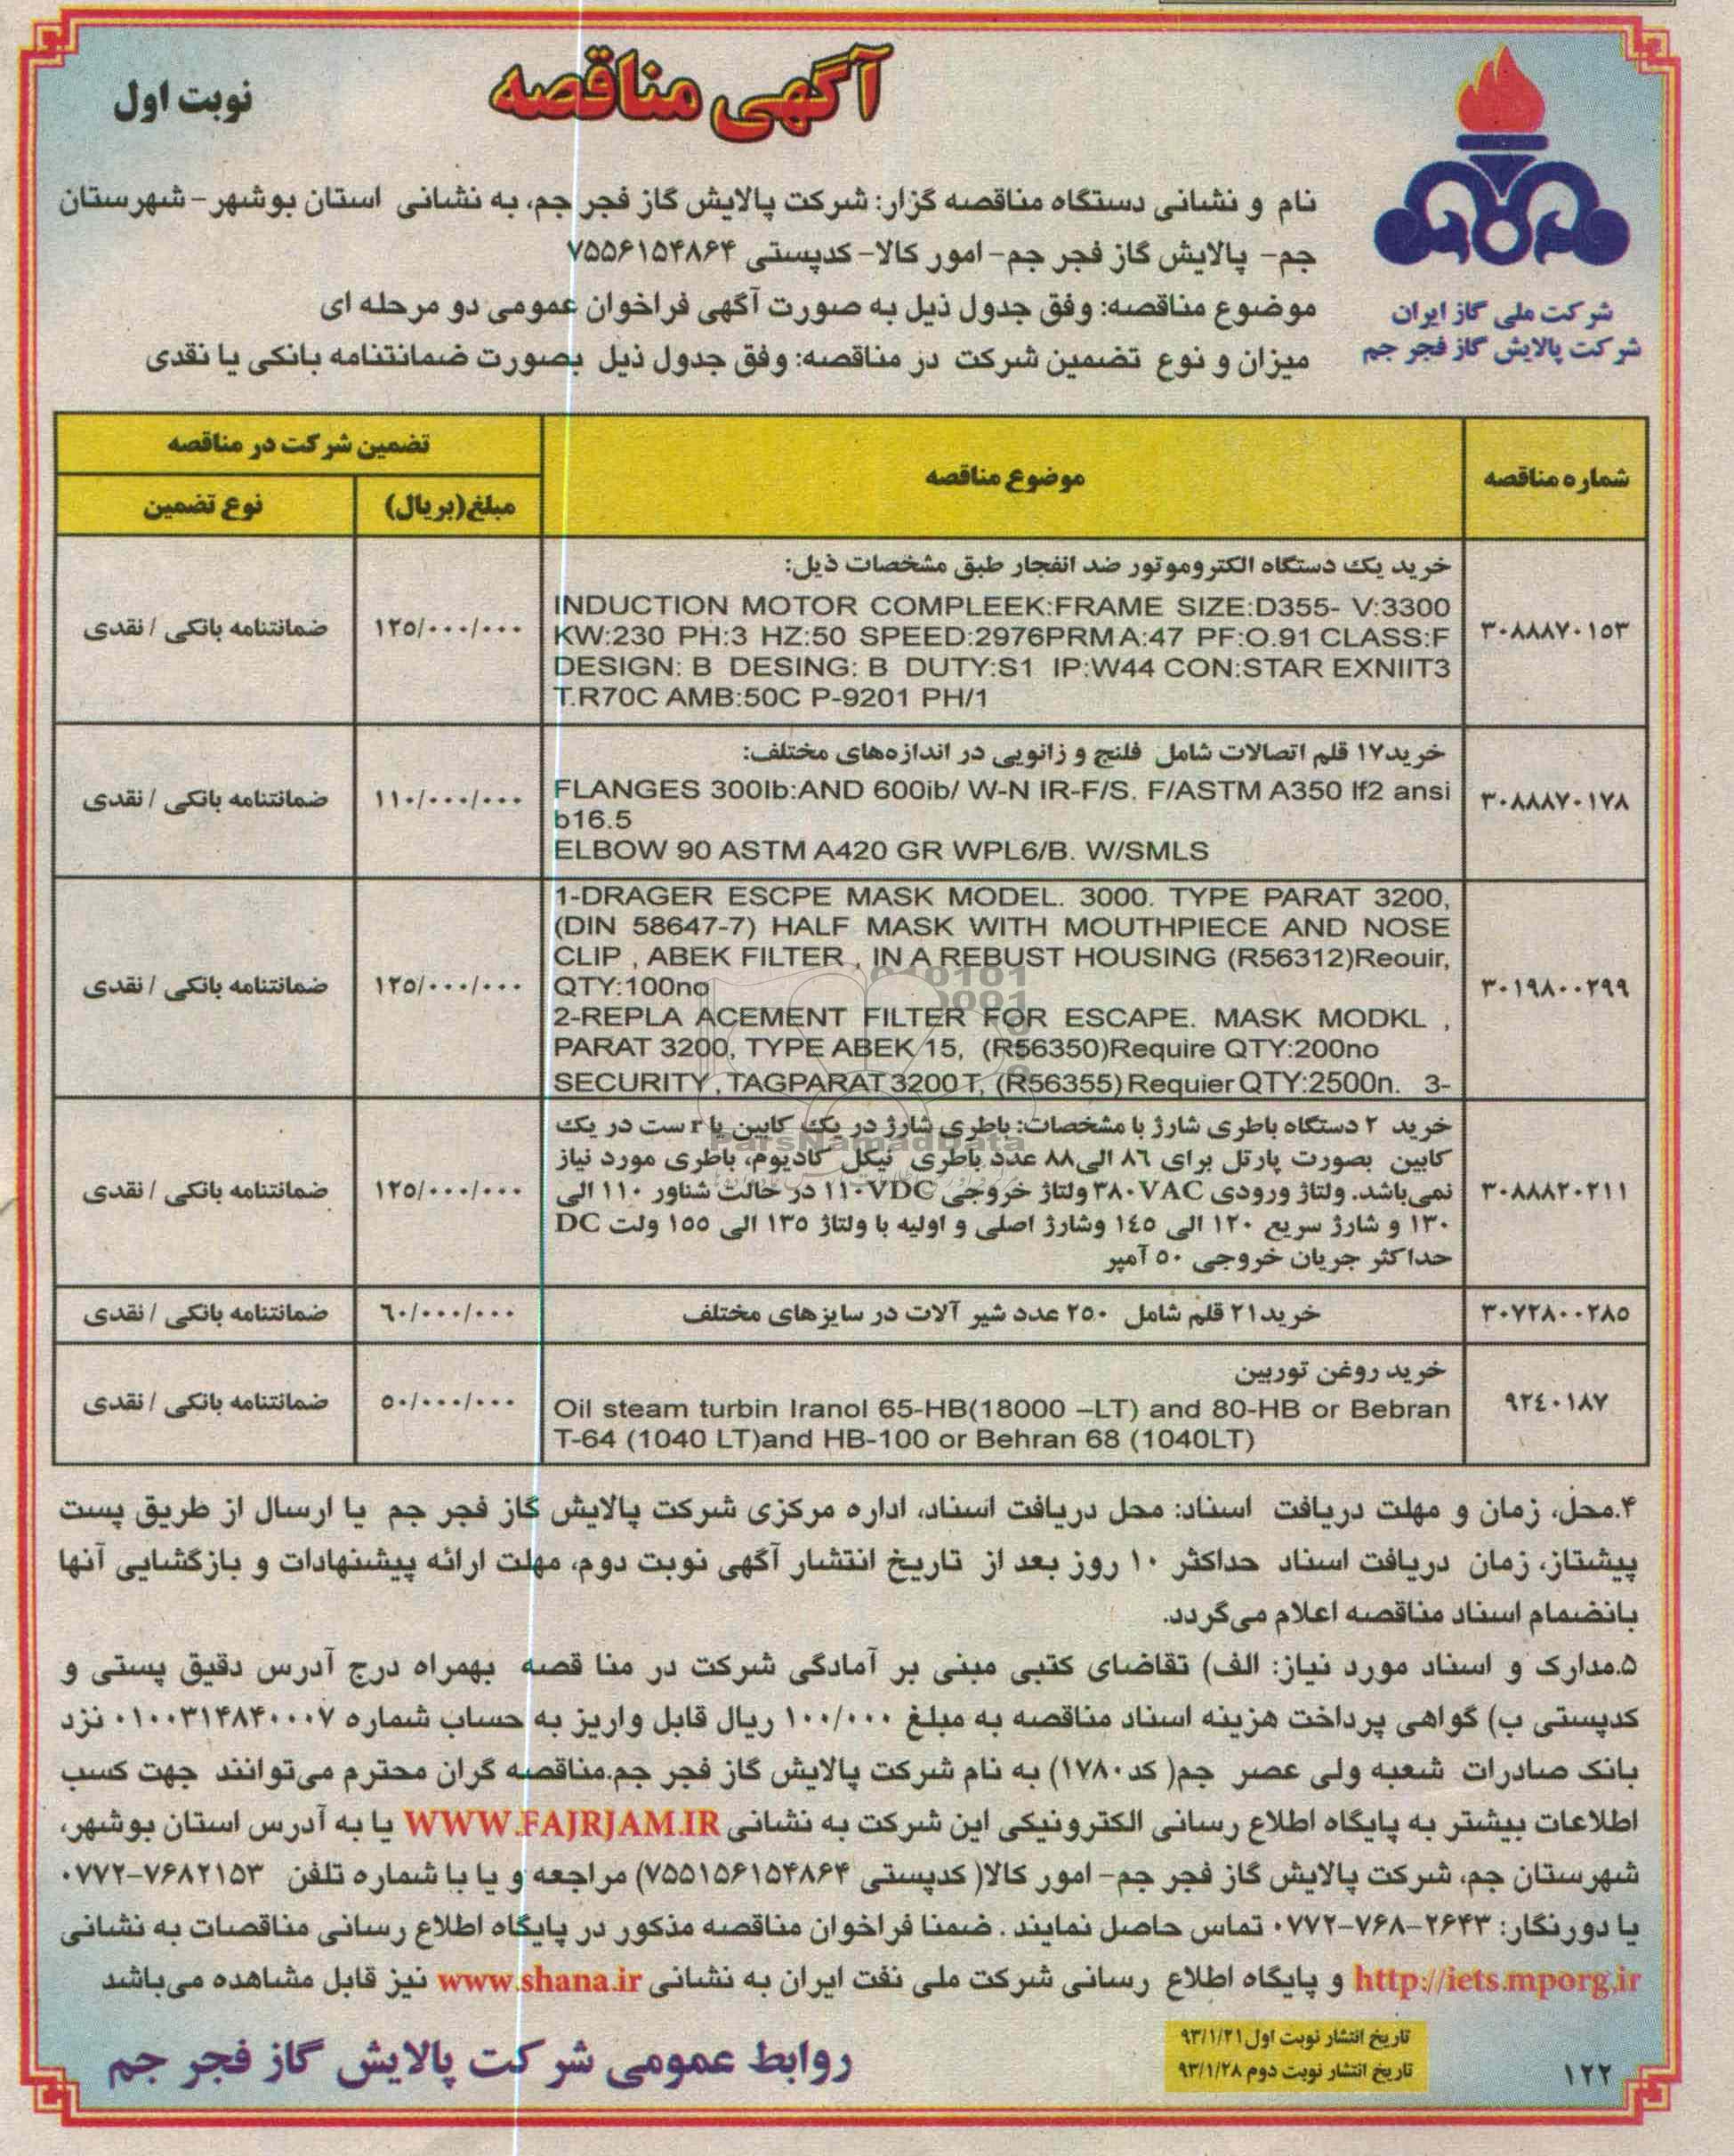 آگهی مناقصه
نوبت اول
شرکت ملی گاز ایران
شرکت پالایش گاز فجر جم
نام و نشانی دستگاه مناقصه گزار: شرکت پالایش گاز فجر جم، به نشانی استان بوشهر- شهرستان
جم- پالایش گاز فجر جم- امور کالا- کدپستی ۷۵۵۶۱۵۴۸۶۴
موضوع مناقصه: وفق جدول ذیل به صورت آگهی فراخوان عمومی دو مرحله ای
میزان و نوع تضمین شرکت در مناقصه: وفق جدول ذیل بصورت ضمانتنامه بانکی یا نقدی
شماره مناقصه
موضوع مناقصه
تضمین شرکت در مناقصه
مبلغ(بریال)
نوع تضمین
۳۰۸۸۸۷۰۱۵۳
خرید یک دستگاه الکتروموتور ضد انفجار طبق مشخصات ذیل:
INDUCTION MOTOR COMPLEEK:FRAME SIZE:D355- V:3300
KW:230 PH:3 HZ:50 SPEED:2976PRM A:47 PF:O.91 CLASS:F
DESIGN: B DESING: B DUTY:S1 IP:W44 CON:STAR EXNIIT3
T.R70C AMB:50C P-9201 PH/1
۱۲۵/۰۰۰/۰۰۰
ضمانتنامه بانکی / نقدی
۳۰۸۸۸۷۰۱۷۸
خرید۱۷ قلم اتصالات شامل فلنج و زانویی در اندازه‌های مختلف:
FLANGES 300Ib:AND 600ib/ W-N IR-F/S. F/ASTM A350 lf2 ansi
b16.5
ELBOW 90 ASTM A420 GR WPL6/B. W/SMLS
۱۱۰/۰۰۰/۰۰۰
ضمانتنامه بانکی / نقدی
۳۰۱۹۸۰۰۲۹۹
1-DRAGER ESCPE MASK MODEL. 3000. TYPE PARAT 3200,
(DIN 58647-7) HALF MASK WITH MOUTHPIECE AND NOSE
CLIP , ABEK FILTER , IN A REBUST HOUSING (R56312)Reouir,
QTY:100no
2-REPLA ACEMENT FILTER FOR ESCAPE. MASK MODKL ,
PARAT 3200, TYPE ABEK 15, (R56350)Require QTY:200no
SECURITY , TAGPARAT 3200 T, (R56355) Requier QTY:2500n. 3-
۱۲۵/۰۰۰/۰۰۰
ضمانتنامه بانکی / نقدی
۳۰۸۸۸۲۰۲۱۱
خرید ۲ دستگاه باطری شارژ با مشخصات: باطری شارژ در یک کابین یا r ست در یک
کابین بصورت پارتل برای ۸۶ الی۸۸ عدد باطری نیکل کادیوم، باطری مورد نیاز
نمی‌باشد. ولتاژ ورودی ۳۸۰VAC ولتاژ خروجی ۱۱۰VDC در حالت شناور ۱۱۰ الی
۱۳۰ و شارژ سریع ۱۲۰ الی ۱٤۵ وشارژ اصلی و اولیه با ولتاژ ۱۳۵ الی ۱۵۵ ولت DC
حداکثر جریان خروجی ۵۰ آمپر
۱۲۵/۰۰۰/۰۰۰
ضمانتنامه بانکی / نقدی
۳۰۷۲۸۰۰۲۸۵
خرید۲۱ قلم شامل ۲۵۰ عدد شیر آلات در سایزهای مختلف
٦۰/۰۰۰/۰۰۰
ضمانتنامه بانکی / نقدی
۹۲٤۰۱۸۷
خرید روغن توربین
Oil steam turbin Iranol 65-HB(18000 –LT) and 80-HB or Bebran
T-64 (1040 LT)and HB-100 or Behran 68 (1040LT)
۵۰/۰۰۰/۰۰۰
ضمانتنامه بانکی / نقدی
ParsNamadData
۴.محل، زمان و مهلت دریافت اسناد: محل دریافت اسناد، اداره مرکزی شرکت پالایش گاز فجر جم یا ارسال از طریق پست
پیشتاز، زمان دریافت اسناد حداکثر ۱۰ روز بعد از تاریخ انتشار آگهی نوبت دوم، مهلت ارائه پیشنهادات و بازگشایی آنها
بانضمام اسناد مناقصه اعلام می‌گردد.
۵.مدارک و اسناد مورد نیاز: الف) تقاضای کتبی مبنی بر آمادگی شرکت در منا قصه بهمراه درج آدرس دقیق پستی و
کدپستی ب) گواهی پرداخت هزینه اسناد مناقصه به مبلغ ۱۰۰/۰۰۰ ریال قابل واریز به حساب شماره ۰۱۰۰۳۱۴۸۴۰۰۰۷ نزد
بانک صادرات شعبه ولی عصر جم( کد۱۷۸۰) به نام شرکت پالایش گاز فجر جم.مناقصه گران محترم می‌توانند جهت کسب
اطلاعات بیشتر به پایگاه اطلاع رسانی الکترونیکی این شرکت به نشانی WWW.FAJRJAM.IR یا به آدرس استان بوشهر،
شهرستان جم، شرکت پالایش گاز فجر جم- امور کالا( کدپستی ۷۵۵۱۵۶۱۵۴۸۶۴) مراجعه و یا با شماره تلفن ۷۶۸۲۱۵۳-۰۷۷۲
یا دورنگار: ۲۶۴۳-۷۶۸-۰۷۷۲ تماس حاصل نمایند . ضمنا فراخوان مناقصه مذکور در پایگاه اطلاع رسانی مناقصات به نشانی
http://iets.mporg.ir و پایگاه اطلاع رسانی شرکت ملی نفت ایران به نشانی www.shana.ir نیز قابل مشاهده می‌باشد
تاریخ انتشار نوبت اول ۹۳/۱/۲۱
تاریخ انتشار نوبت دوم ۹۳/۱/۲۸
روابط عمومی شرکت پالایش گاز فجر جم
۱۲۲